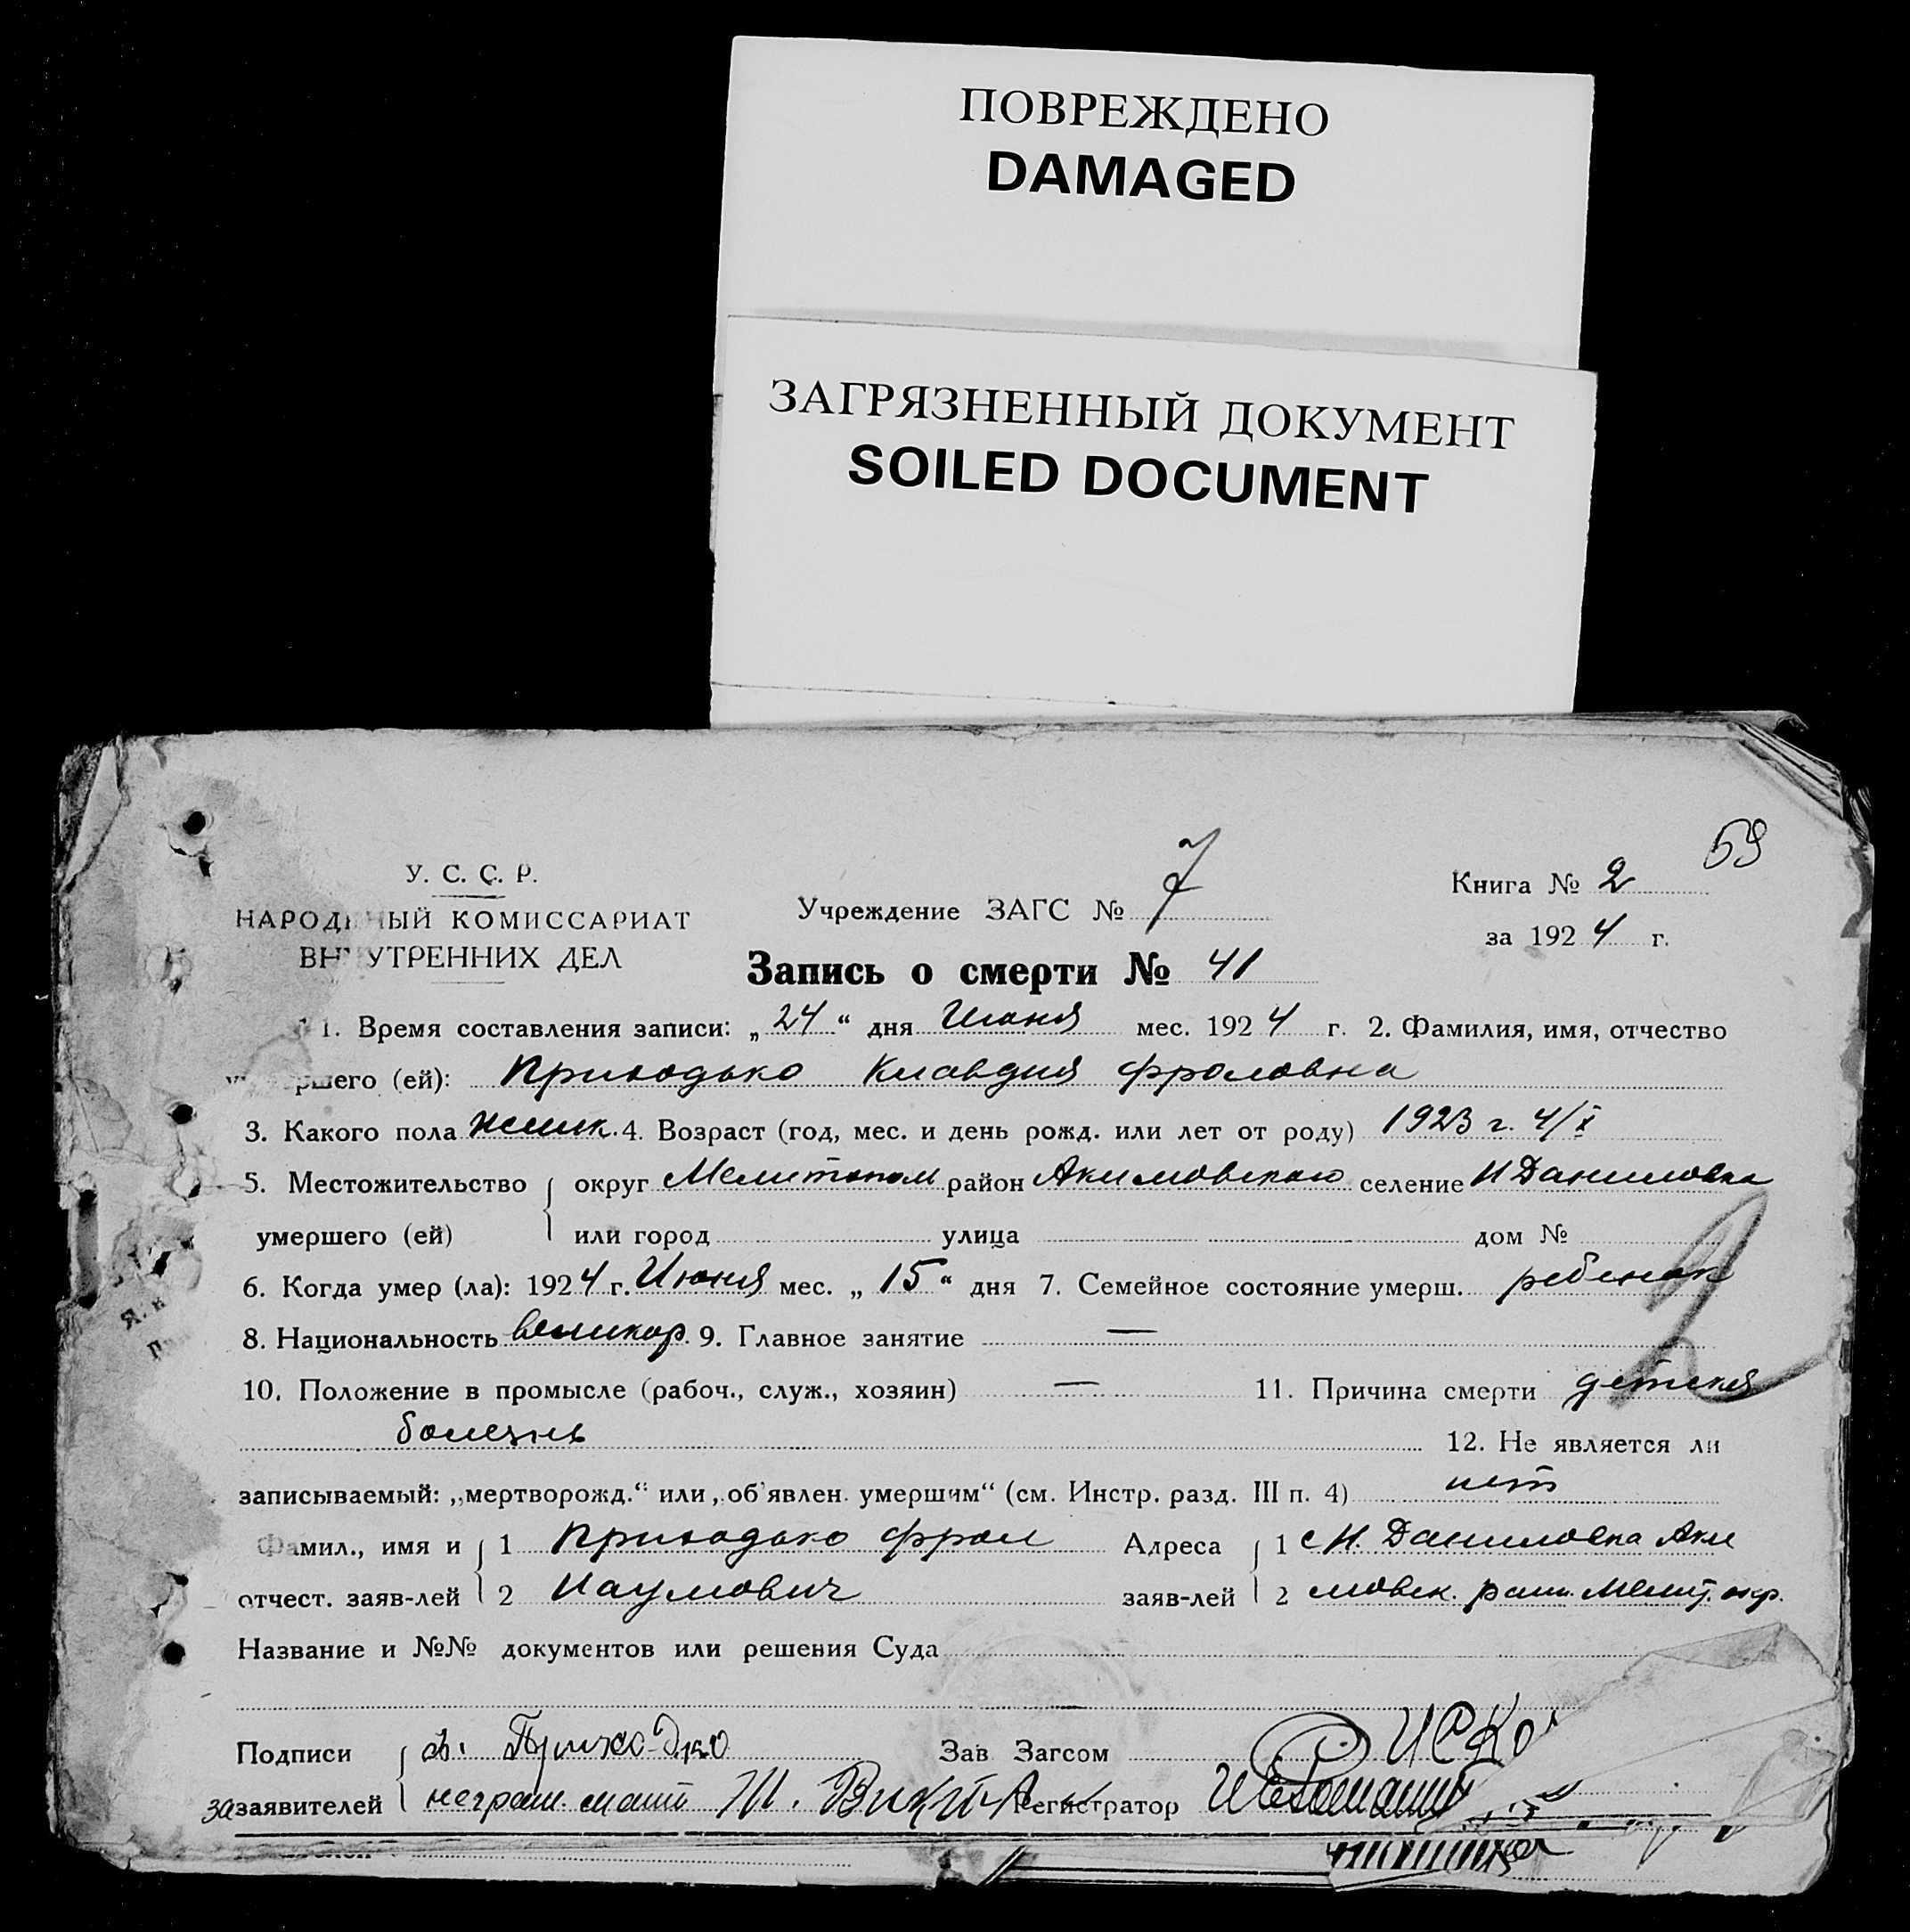 ПОВРЕЖДЕНО
DAMAGED
ЗАГРЯЗНЕННЫЙ ДОКУМЕНТ
SOILED DOCUMENT
59
У. С. С. Р.
НАРОДНЫЙ КОМИССАРИАТ
ВНУТРЕННИХ ДЕЛ
Учреждение ЗАГС № 7
Книга № 2
за 1924 г.
Запись о смерти № 41
1. Время составления записи: „24“ дня Июня мес. 1924 г. 2. Фамилия, имя, отчество
умершего (ей): Приходько Клавдия Фроловна
3. Какого пола женск. 4. Возраст (год, мес. и день рожд. или лет от роду) 1923 г. 4/X
5. Местожительство округ Мелитопол район Акимовского селение Н Даниловка
умершего (ей) или город улица дом №
6. Когда умер (ла): 1924 г. Июня мес. „15“ дня 7. Семейное состояние умерш. ребенок
8. Национальность великор. 9. Главное занятие —
10. Положение в промысле (рабоч., служ., хозяин) — 11. Причина смерти детская
болезнь 12. Не является ли
записываемый: „мертворожд.“ или „об'явлен. умершим“ (см. Инстр. разд. III п. 4) нет
Фамил., имя и 1 Приходько Фрол Адреса 1 с Н. Даниловка Аки
отчест. заяв-лей 2 Наумович заяв-лей 2 мовск. райн. Мелит. окр.
Название и №№ документов или решения Суда
Подписи Приходько Зав Загсом
за заявителей неграмотн Регистратор